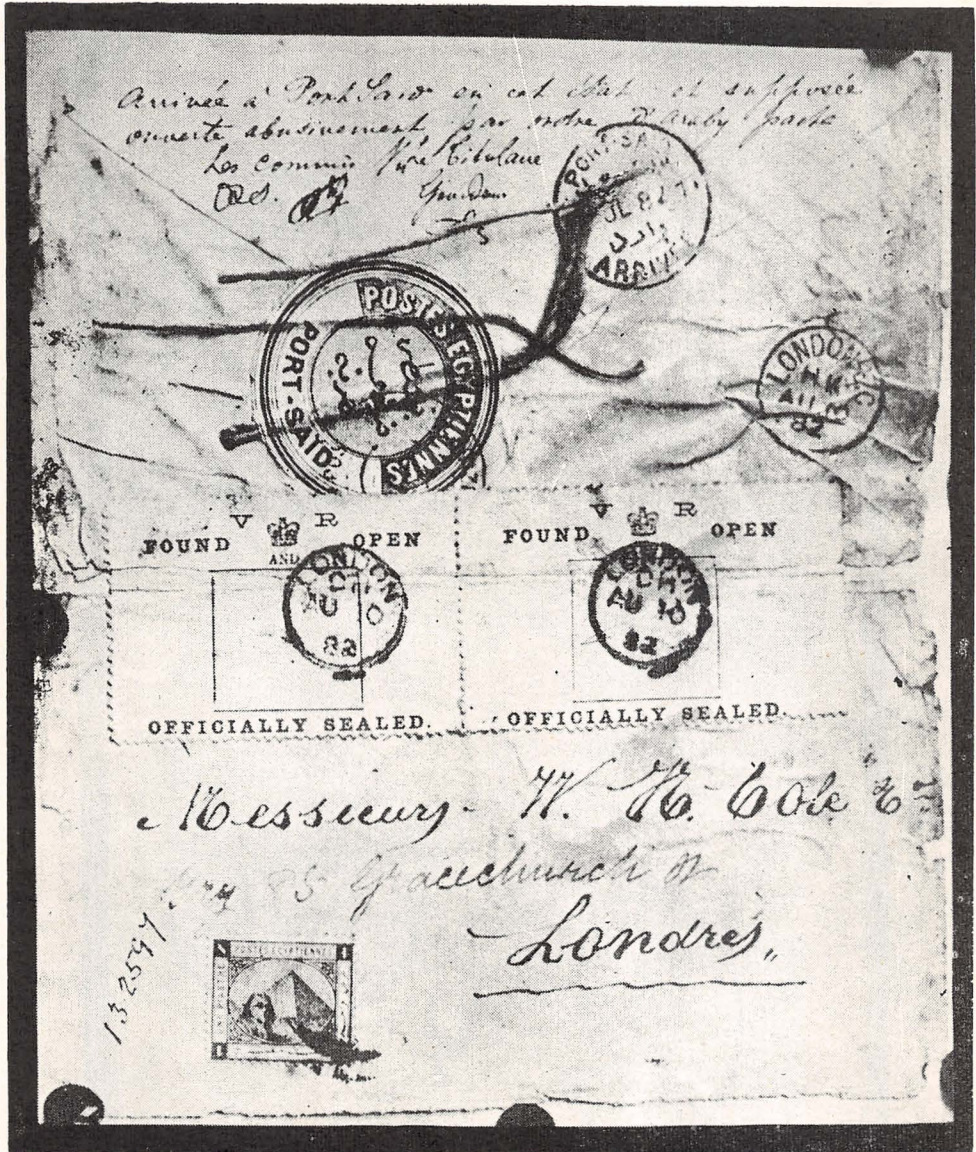 Arrivée à Port Said en cet état et supposée
ouverte abusivement par ordre d'Araby pacha
Les commis
PORT-SAID
JL 82
ARRIVÉE
POSTES EGYPTIENNES
PORT-SAID
LONDON E.C
AU
82
V R
FOUND AND OPEN
LONDON
AU 10
82
OFFICIALLY SEALED.
V R
FOUND OPEN
LONDON
AU 10
82
OFFICIALLY SEALED.
Messieurs W. H. Cole &
85 Gracechurch St
Londres,
132597
POSTES EGYPTIENNES